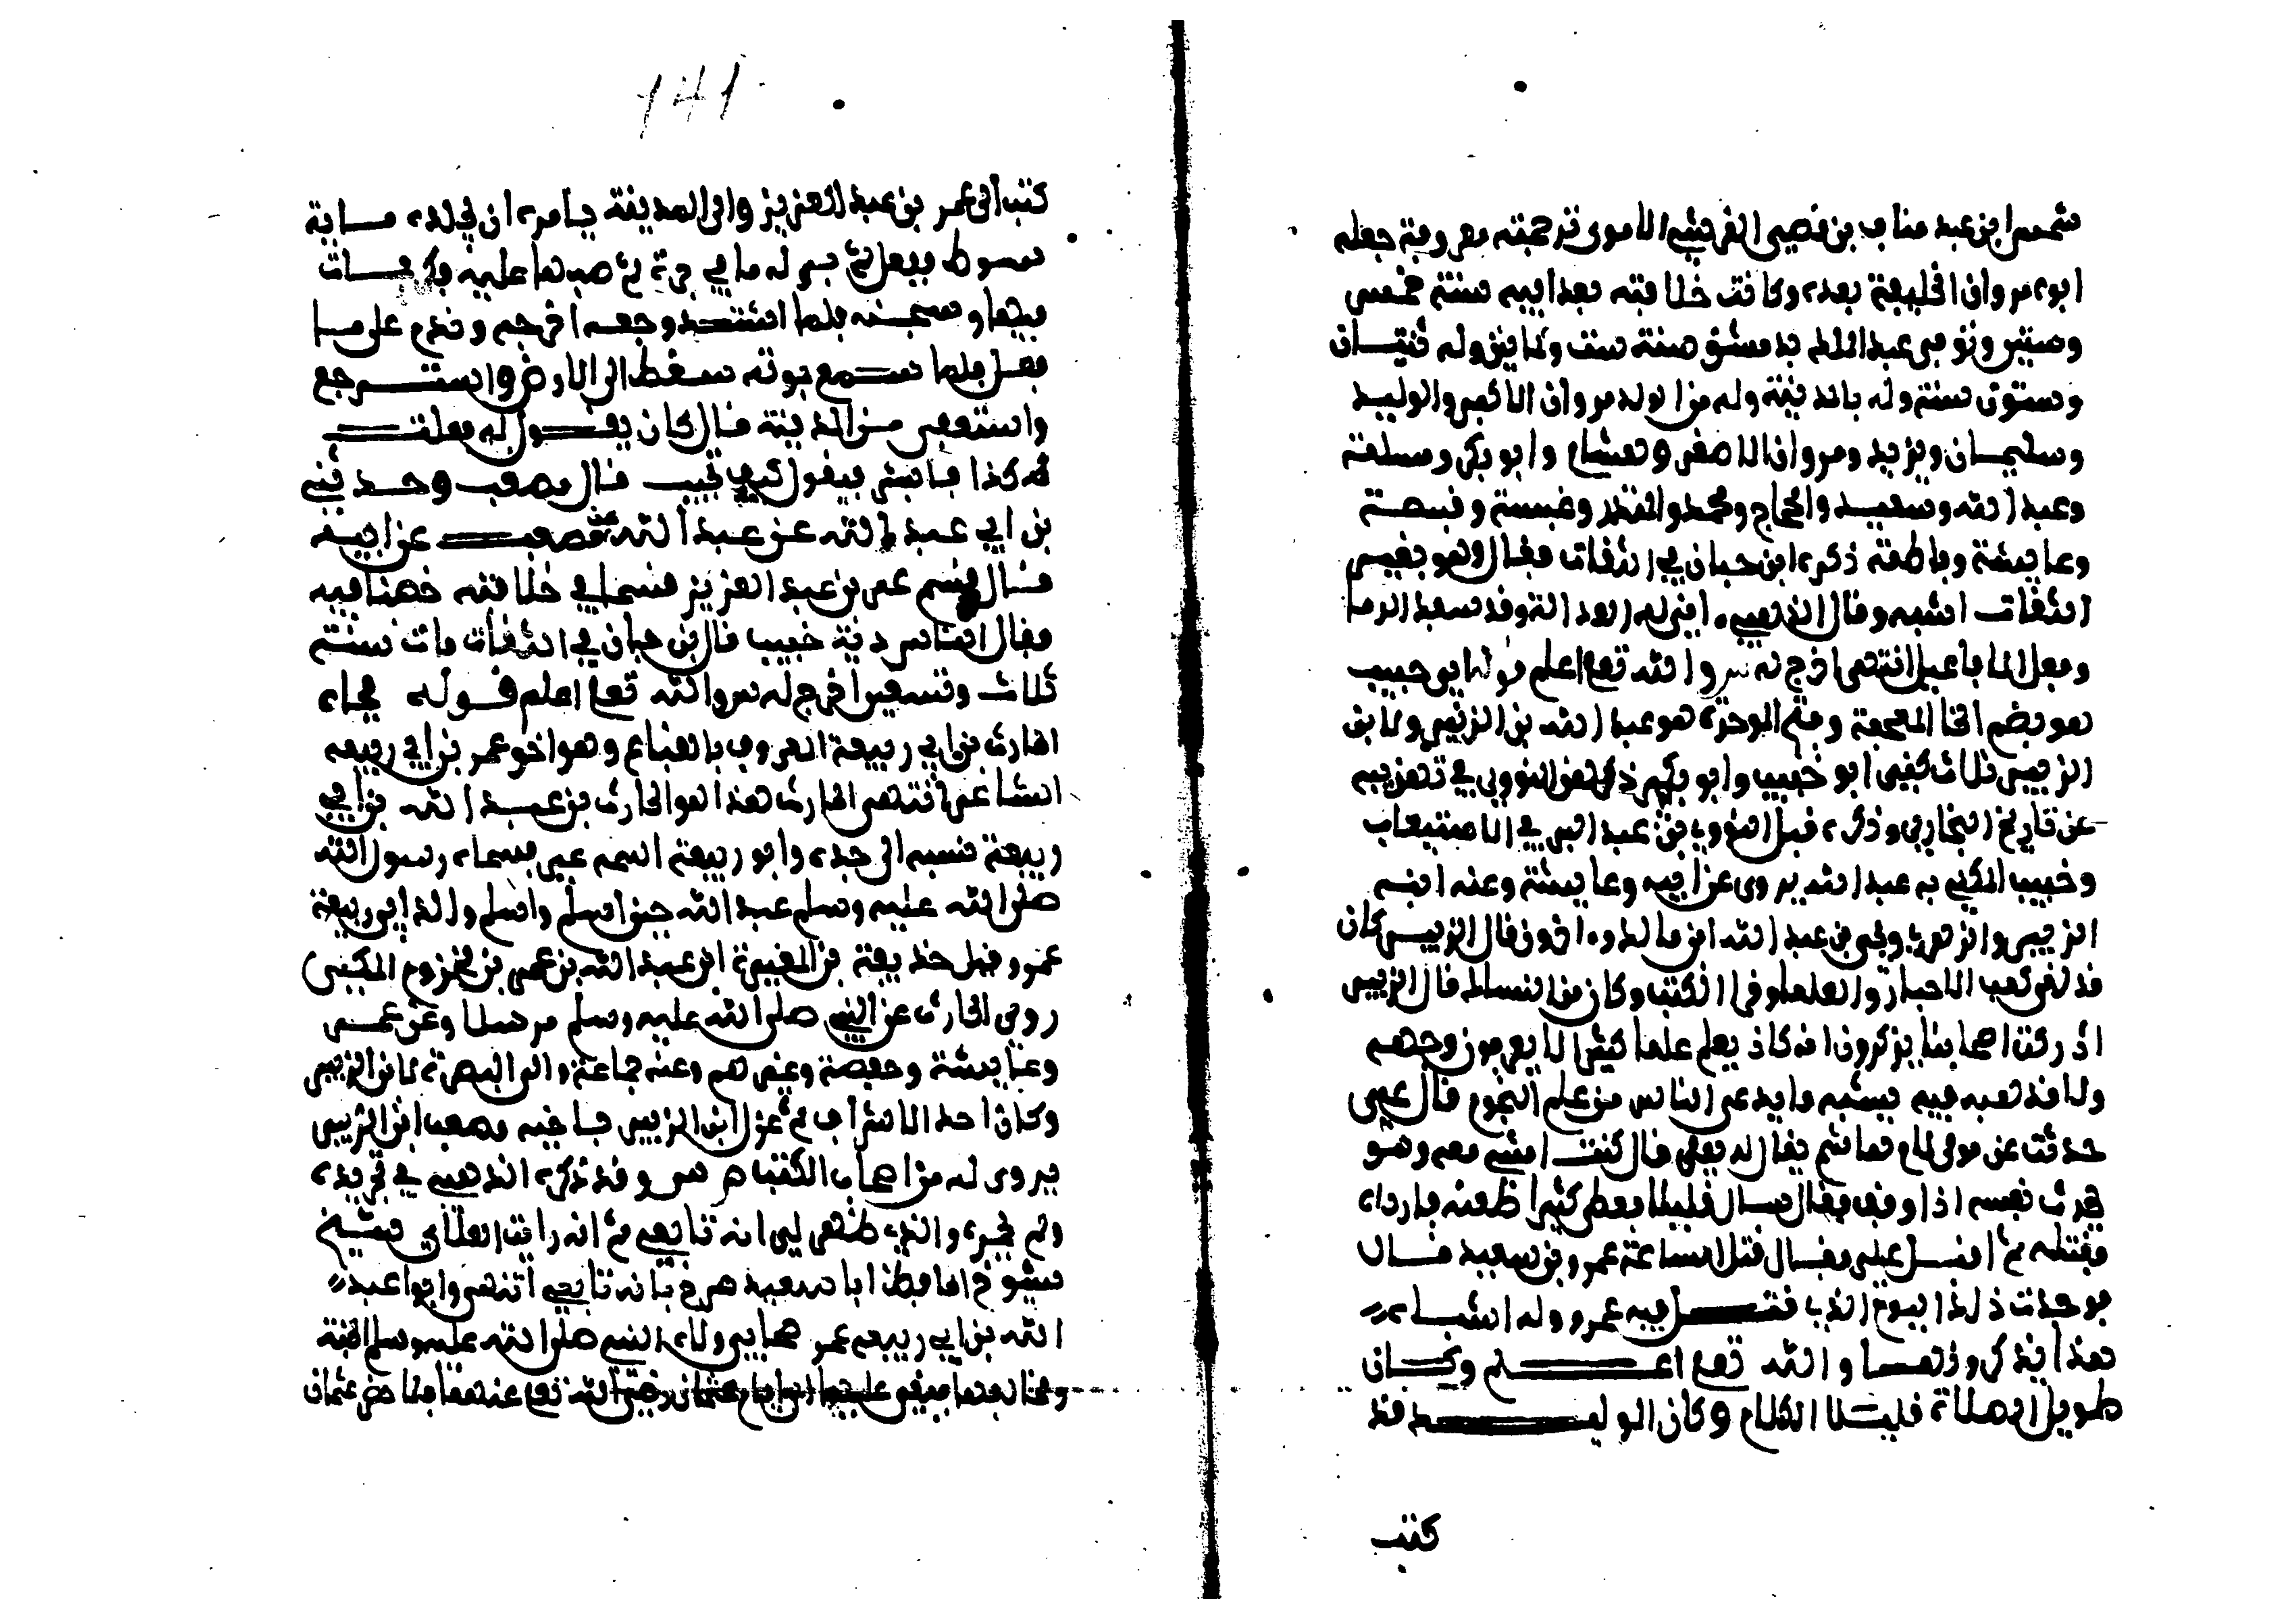 شمس ابن عبد مناف بن قصي القرشي الاموى ترجمته معروفة جعله
ابوه مروان الخليفة بعده وكانت خلافته بعد ابيه سنة خمس
وستين وتوفي عبد الملك بدمشق سنة ست وثمانين وله ثنتان
وستون سنة وله بالمدينة وله من الولد مروان الاكبر والوليد
وسليمان ويزيد ومروان الاصغر وهشام وابو بكر ومسلمة
وعبد الله وسعيد والحجاج ومحمد والمنذر وعنبسة وقبيصة
وعايشة وفاطمة ذكره ابن حبان في الثقات فقال وهو بغير
الثقات اشبه وقال الذهبي انى له العدالة وقد سفك الدما
وفعل الافاعيل انتهى اخرج له والله تعالى اعلم قوله ابو خبيب
هو بضم الخا المعجمة وفتح الموحدة هو عبد الله بن الزبير ولابن
الزبير ثلاث كنى ابو خبيب وابو بكر ذكرهن النووي في تهذيبه
عن تاريخ البخاري وذكره قبل النووي بن عبد البر في الاستيعاب
وخبيب المكنى به عبد الله يروى عن ابيه وعايشة وعنه ابنه
الزبير والزهري ويحيى بن عبد الله ابن مالك واخرون قال الزبير كان
قد لقى كعب الاحبار والعلما وقرا الكتب وكان من النساك قال الزبير
ادركت اصحابنا يذكرون انه كان يعلم علما كثيرا لا يعرفون وجهه
ولا مذهبه فيه يشبه ما يدعى الناس من علم النجوم قال عمى
حدثت عن مولى لام هاشم يقال له يعلى قال كنت امشي معه وهو
يحدث نفسه اذا وقف فقال سال قليلا فعطى كثيرا طعنه فارداه
فقتله ثم اقبل على فقال قتل الساعة عمرو بن سعيد قال
فوجدت ذلك اليوم الذي قتل فيه عمرو وله اشباه
هذا يذكرونها والله تعالى اعلم وكان
طويل الصلاة قليل الكلام وكان الوليد قد
كتب
141
كتب الى عمر بن عبد العزيز والى المدينة يامره ان يجلده ماية
سوط ففعل ثم برد له ما في جرة ثم صبها عليه
وسجنه فلما اشتد وجعه اخرجه وندم على ما
فعل فلما سمع بموته سقط الى الارض واسترجع
واستعفى من المدينة قال كان يقول له فعلت
كذا فابشر فيقول كيف بخبيب قال مصعب وحدثني
بن ابي عبد الله عن عبد الله عن مصعب عن ابيه
قال قسم عمر بن عبد العزيز قسما في خلافته خصنا فيه
فقال الناس دية خبيب قال بن حبان في الثقات مات سنة
ثلاث وتسعين اخرج له س والله تعالى اعلم قوله فجاء
الحارث بن ابي ربيعة المعروف بالقباع وهو اخو عمر بن ابي ربيعة
الشاعر انتهى الحارث هذا هو الحارث بن عبد الله بن ابي
ربيعة نسبه الى جده وابو ربيعة اسمه فسماه رسول الله
صلى الله عليه وسلم عبد الله حين اسلم واسلم والد ابو ربيعة
عمرو وقيل حذيفة بن المغيرة ابن عبد الله بن عمر بن مخزوم المكي
روى الحارث عن النبي صلى الله عليه وسلم مرسلا وعن عمر
وعايشة وحفصة وغيرهم وعنه جماعة والى البصرة لابن الزبير
وكان احد الاشراف ثم عزل ابن الزبير باخيه مصعب ابن الزبير
يروى له من اصحاب الكتب م س وقد ذكره الذهبي في تجريده
ولم يحمره والذي ظهر لى انه تابعي ثم انه رايت العلاي شيخ
شيوخ الحافظ ابا سعيد صرح بانه تابعي انتهى وابوا عبد
الله بن ابي ربيعة عمرو صحابي ولاه النبي صلى الله عليه وسلم الجند
ومخالفها فبقى عليها الى ايام عثمان رضى الله تعالى عنهما فلما حضر عثمان